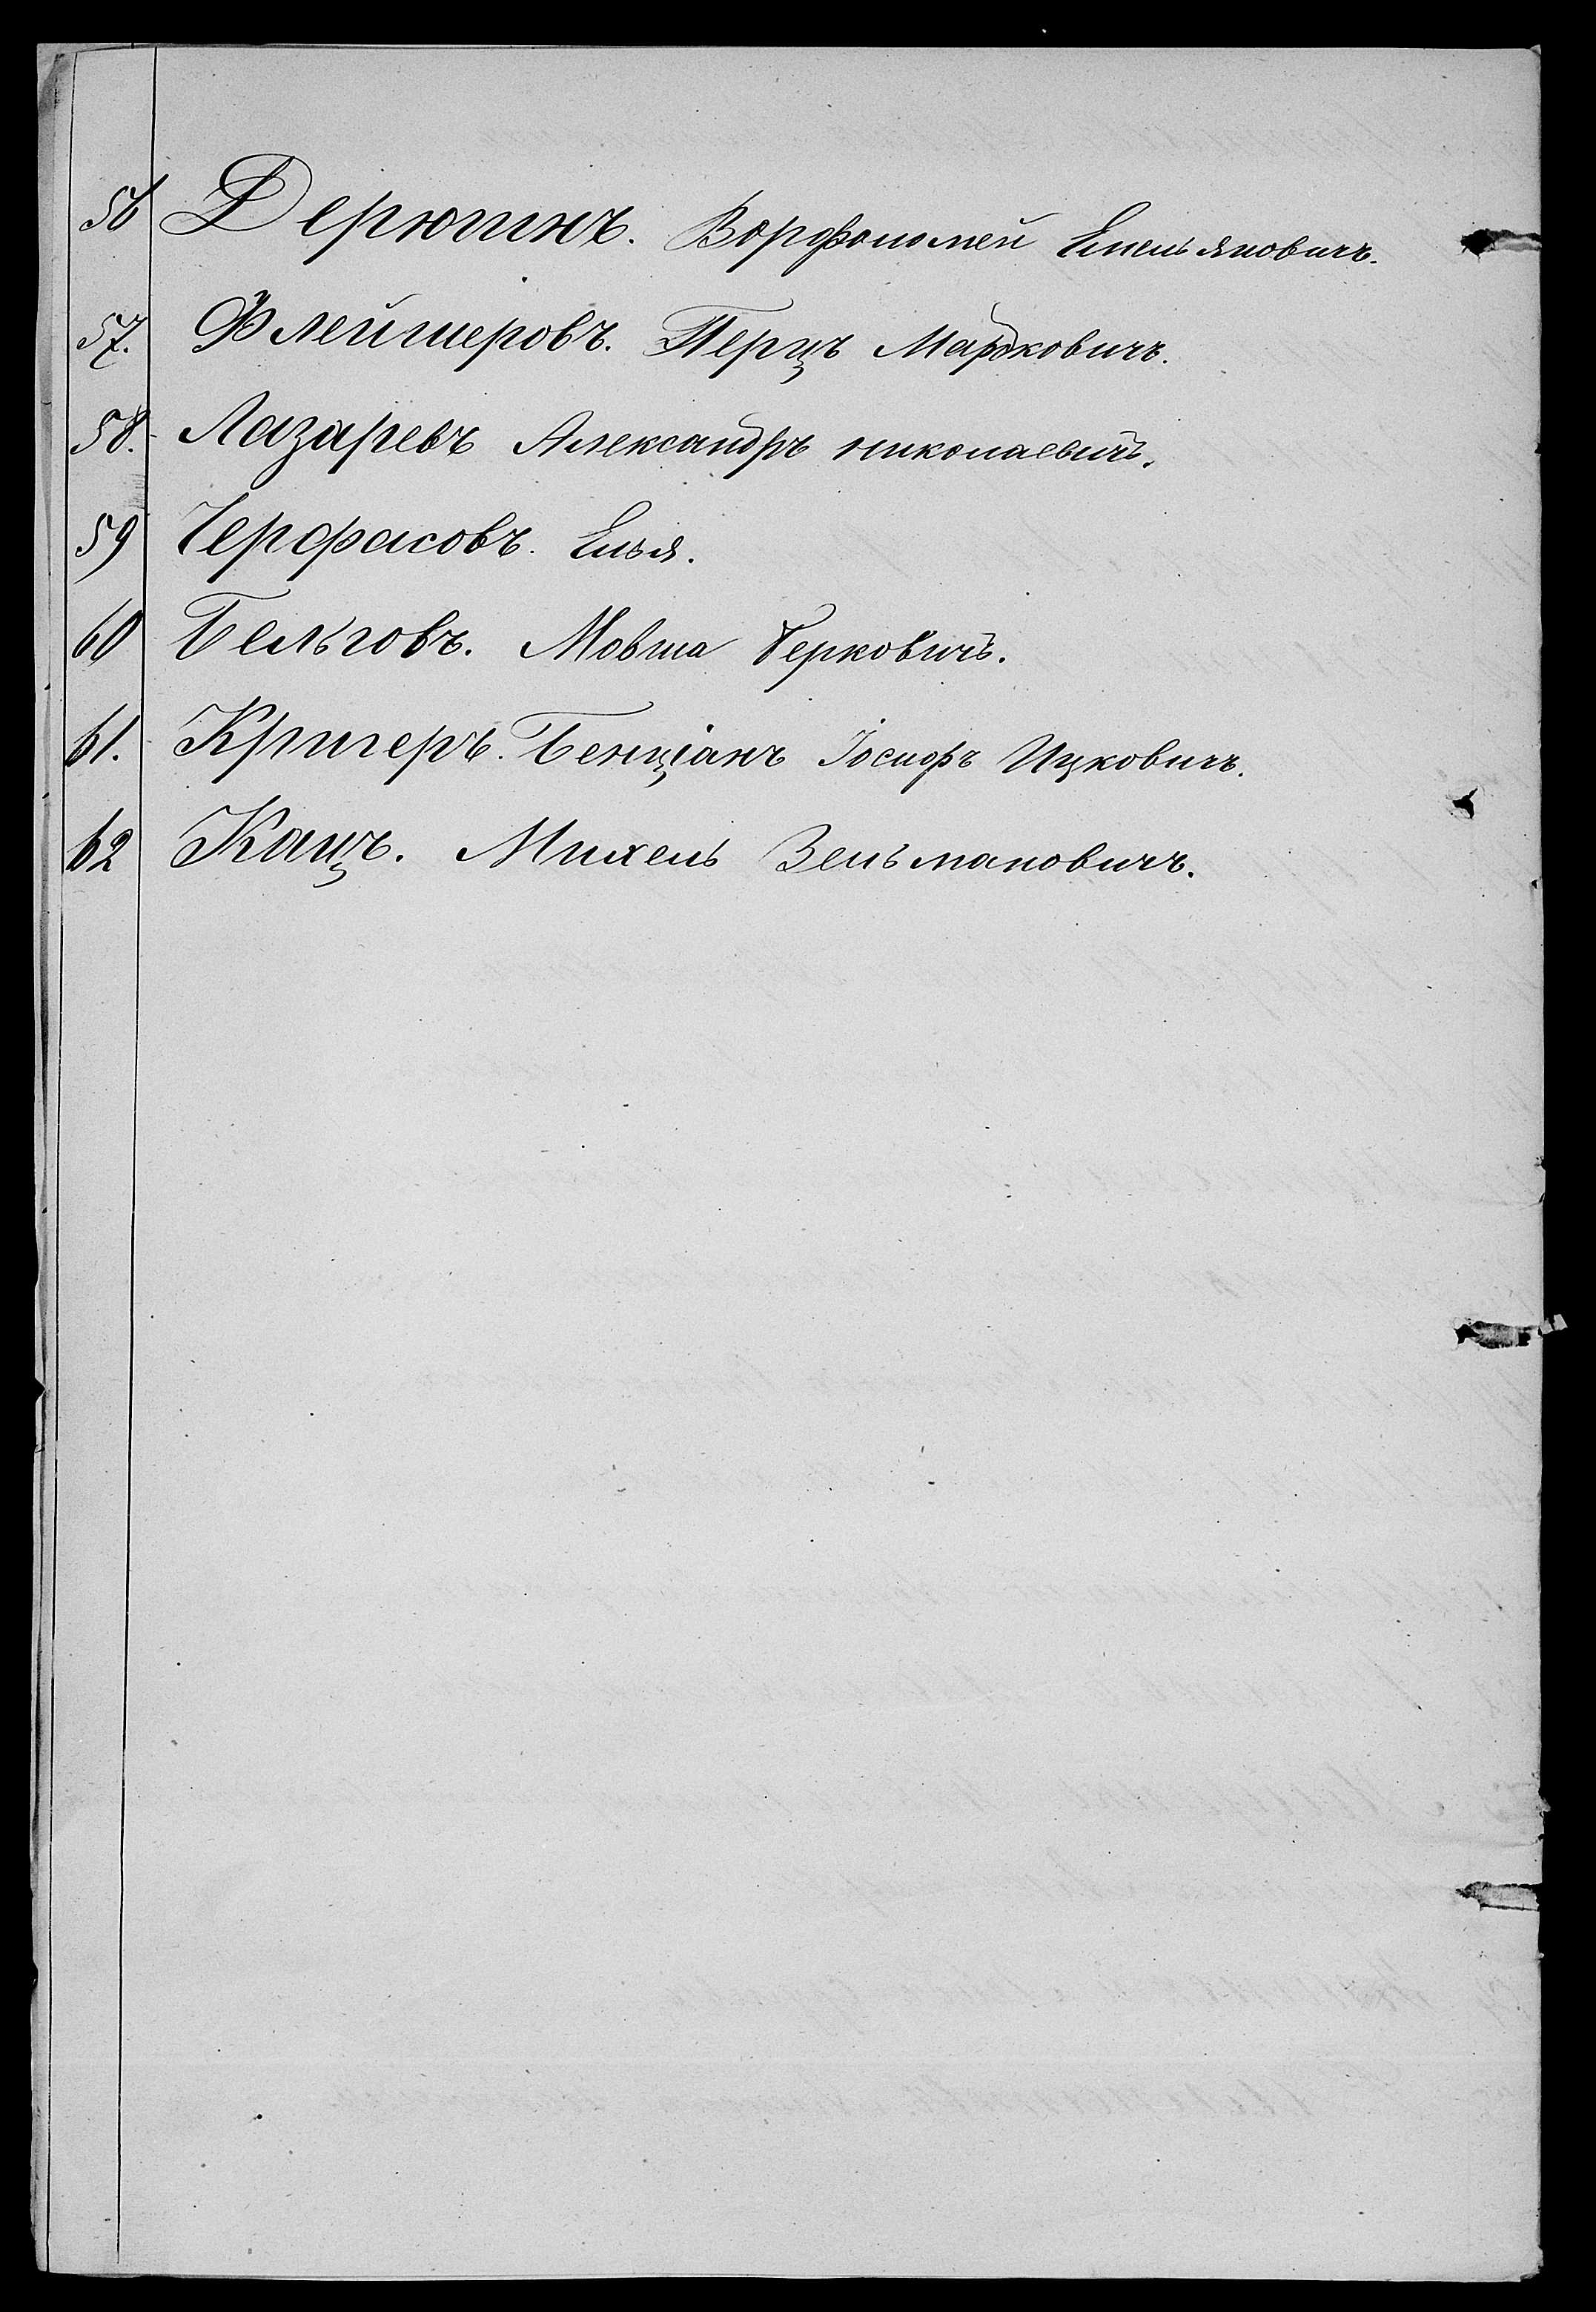 56 Дерюгинъ. Ворфоломей Емельяновичъ.
57. Флейшеровъ. Перцъ Мардковичъ.
58. Лазаревъ Александръ николаевичъ.
59 Черфасовъ. Елья.
60 Бельговъ. Мовша Берковичъ.
61. Кригеръ. Бенціанъ Іосифъ Ицковичъ.
62 Кацъ. Михель Зельмановичъ.